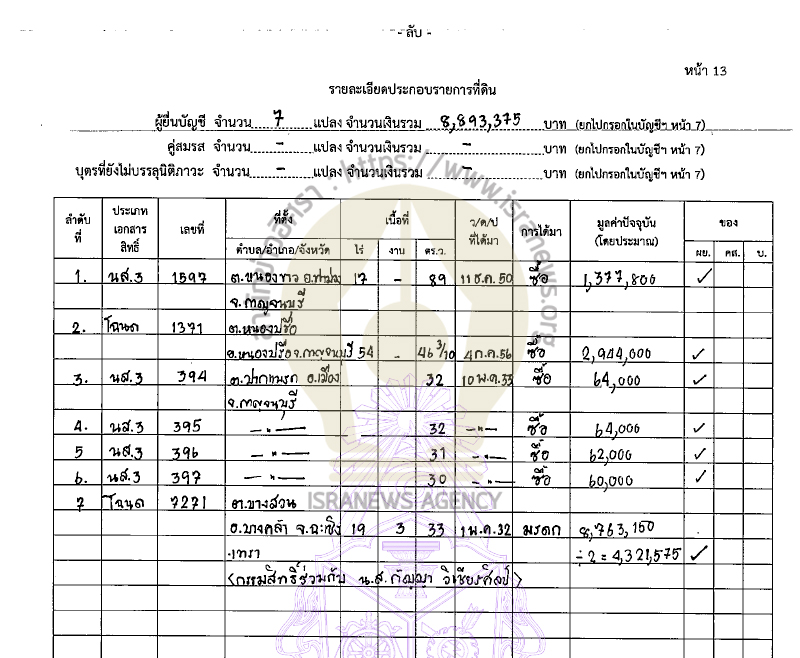 - ลับ -
หน้า 13
รายละเอียดประกอบรายการที่ดิน
ผู้ยื่นบัญชี จำนวน 7 แปลง จำนวนเงินรวม 8,893,375 บาท (ยกไปกรอกในบัญชีฯ หน้า 7)
คู่สมรส จำนวน - แปลง จำนวนเงินรวม - บาท (ยกไปกรอกในบัญชีฯ หน้า 7)
บุตรที่ยังไม่บรรลุนิติภาวะ จำนวน - แปลง จำนวนเงินรวม - บาท (ยกไปกรอกในบัญชีฯ หน้า 7)
สำนักข่าวอิศรา : https://www.isranews.org
ลำดับที่ ประเภทเอกสารสิทธิ์ เลขที่ ที่ตั้ง เนื้อที่ ว/ด/ป ที่ได้มา การได้มา มูลค่าปัจจุบัน (โดยประมาณ) ของ
ตำบล/อำเภอ/จังหวัด ไร่ งาน ตร.ว. ผย. คส. บ.
1. นส.3 1597 ต.หนองขาว อ.ท่าม่วง 17 - 89 11 ธ.ค. 50 ซื้อ 1,377,800 ✓
จ.กาญจนบุรี
2. โฉนด 1371 ต.หนองปรือ
อ.หนองปรือ จ.กาญจนบุรี 54 - 46 3/10 4 ก.ค. 56 ซื้อ 2,944,000 ✓
3. นส.3 394 ต.ปากแพรก อ.เมือง 32 10 พ.ค. 33 ซื้อ 64,000 ✓
จ.กาญจนบุรี
4. นส.3 395 —"— 32 —"— ซื้อ 64,000 ✓
5 นส.3 396 —"— 31 —"— ซื้อ 62,000 ✓
6. นส.3 397 —"— 30 —"— ซื้อ 60,000 ✓
7 โฉนด 7271 ต.บางสวน
ISRANEWS AGENCY
อ.บางคล้า จ.ฉะเชิง 19 3 33 1 พ.ค. 32 มรดก 8,763,150
.เทรา ÷ 2 = 4,321,575 ✓
(กรรมสิทธิ์ร่วมกับ น.ส. กัญญา วิเชียรศิลป์)